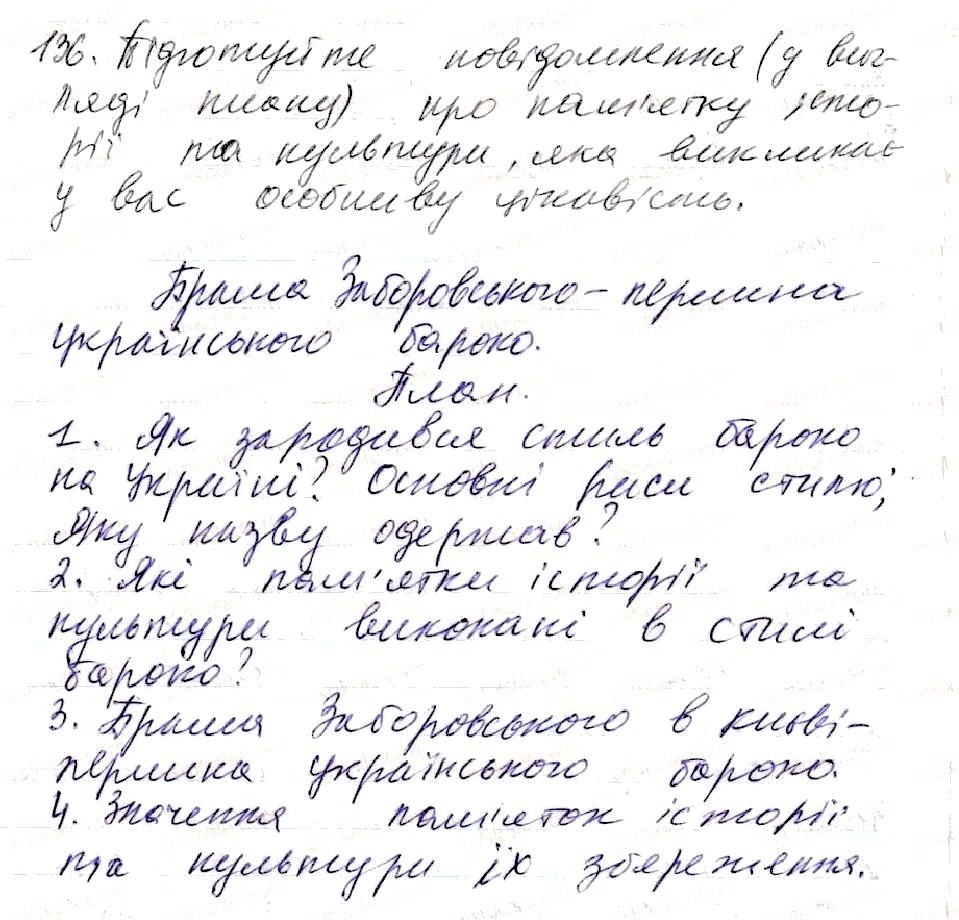 136. Підготуйте повідомлення (у виг-
ляді плану) про пам'ятку істо-
рії та культури, яка викликає
у вас особливу цікавість.
Брама Заборовського - перлина
українського бароко.
План.
1. Як зародився стиль бароко
на Україні? Основні риси стилю;
Яку назву одержав?
2. Які пам'ятки історії та
культури виконані в стилі
бароко?
3. Брама Заборовського в Києві-
перлина українського бароко.
4. Значення пам'яток історії
та культури їх збереження.